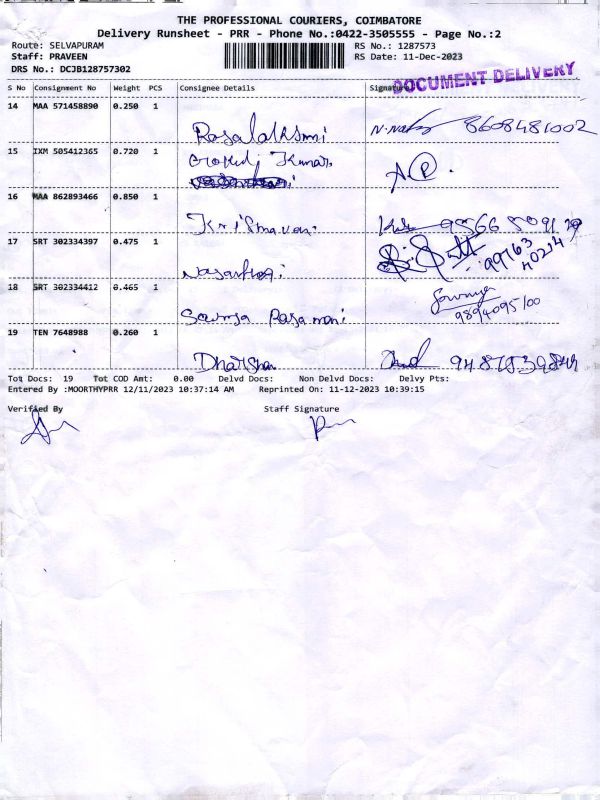 THE PROFESSIONAL COURIERS, COIMBATORE
Delivery Runsheet - PRR - Phone No.:0422-3505555 - Page No.:2
Route: SELVAPURAM RS No.: 1287573
Staff: PRAVEEN RS Date: 11-Dec-2023
DRS No.: DCJB128757302
DOCUMENT DELIVERY
S No Consignment No Weight PCS Consignee Details Signature
14 MAA 571458890 0.250 1
Rasalakshmi 8608481002
15 IXM 505412365 0.720 1
Kumar
16 MAA 862893466 0.850 1
17 SRT 302334397 0.475 1
18 SRT 302334412 0.465 1
Sowmya
Sowmya Rasamani 9894095100
19 TEN 7648988 0.260 1
Dharshan
Tot Docs: 19 Tot COD Amt: 0.00 Delvd Docs: Non Delvd Docs: Delvy Pts:
Entered By :MOORTHYPRR 12/11/2023 10:37:14 AM Reprinted On: 11-12-2023 10:39:15
Verified By Staff Signature